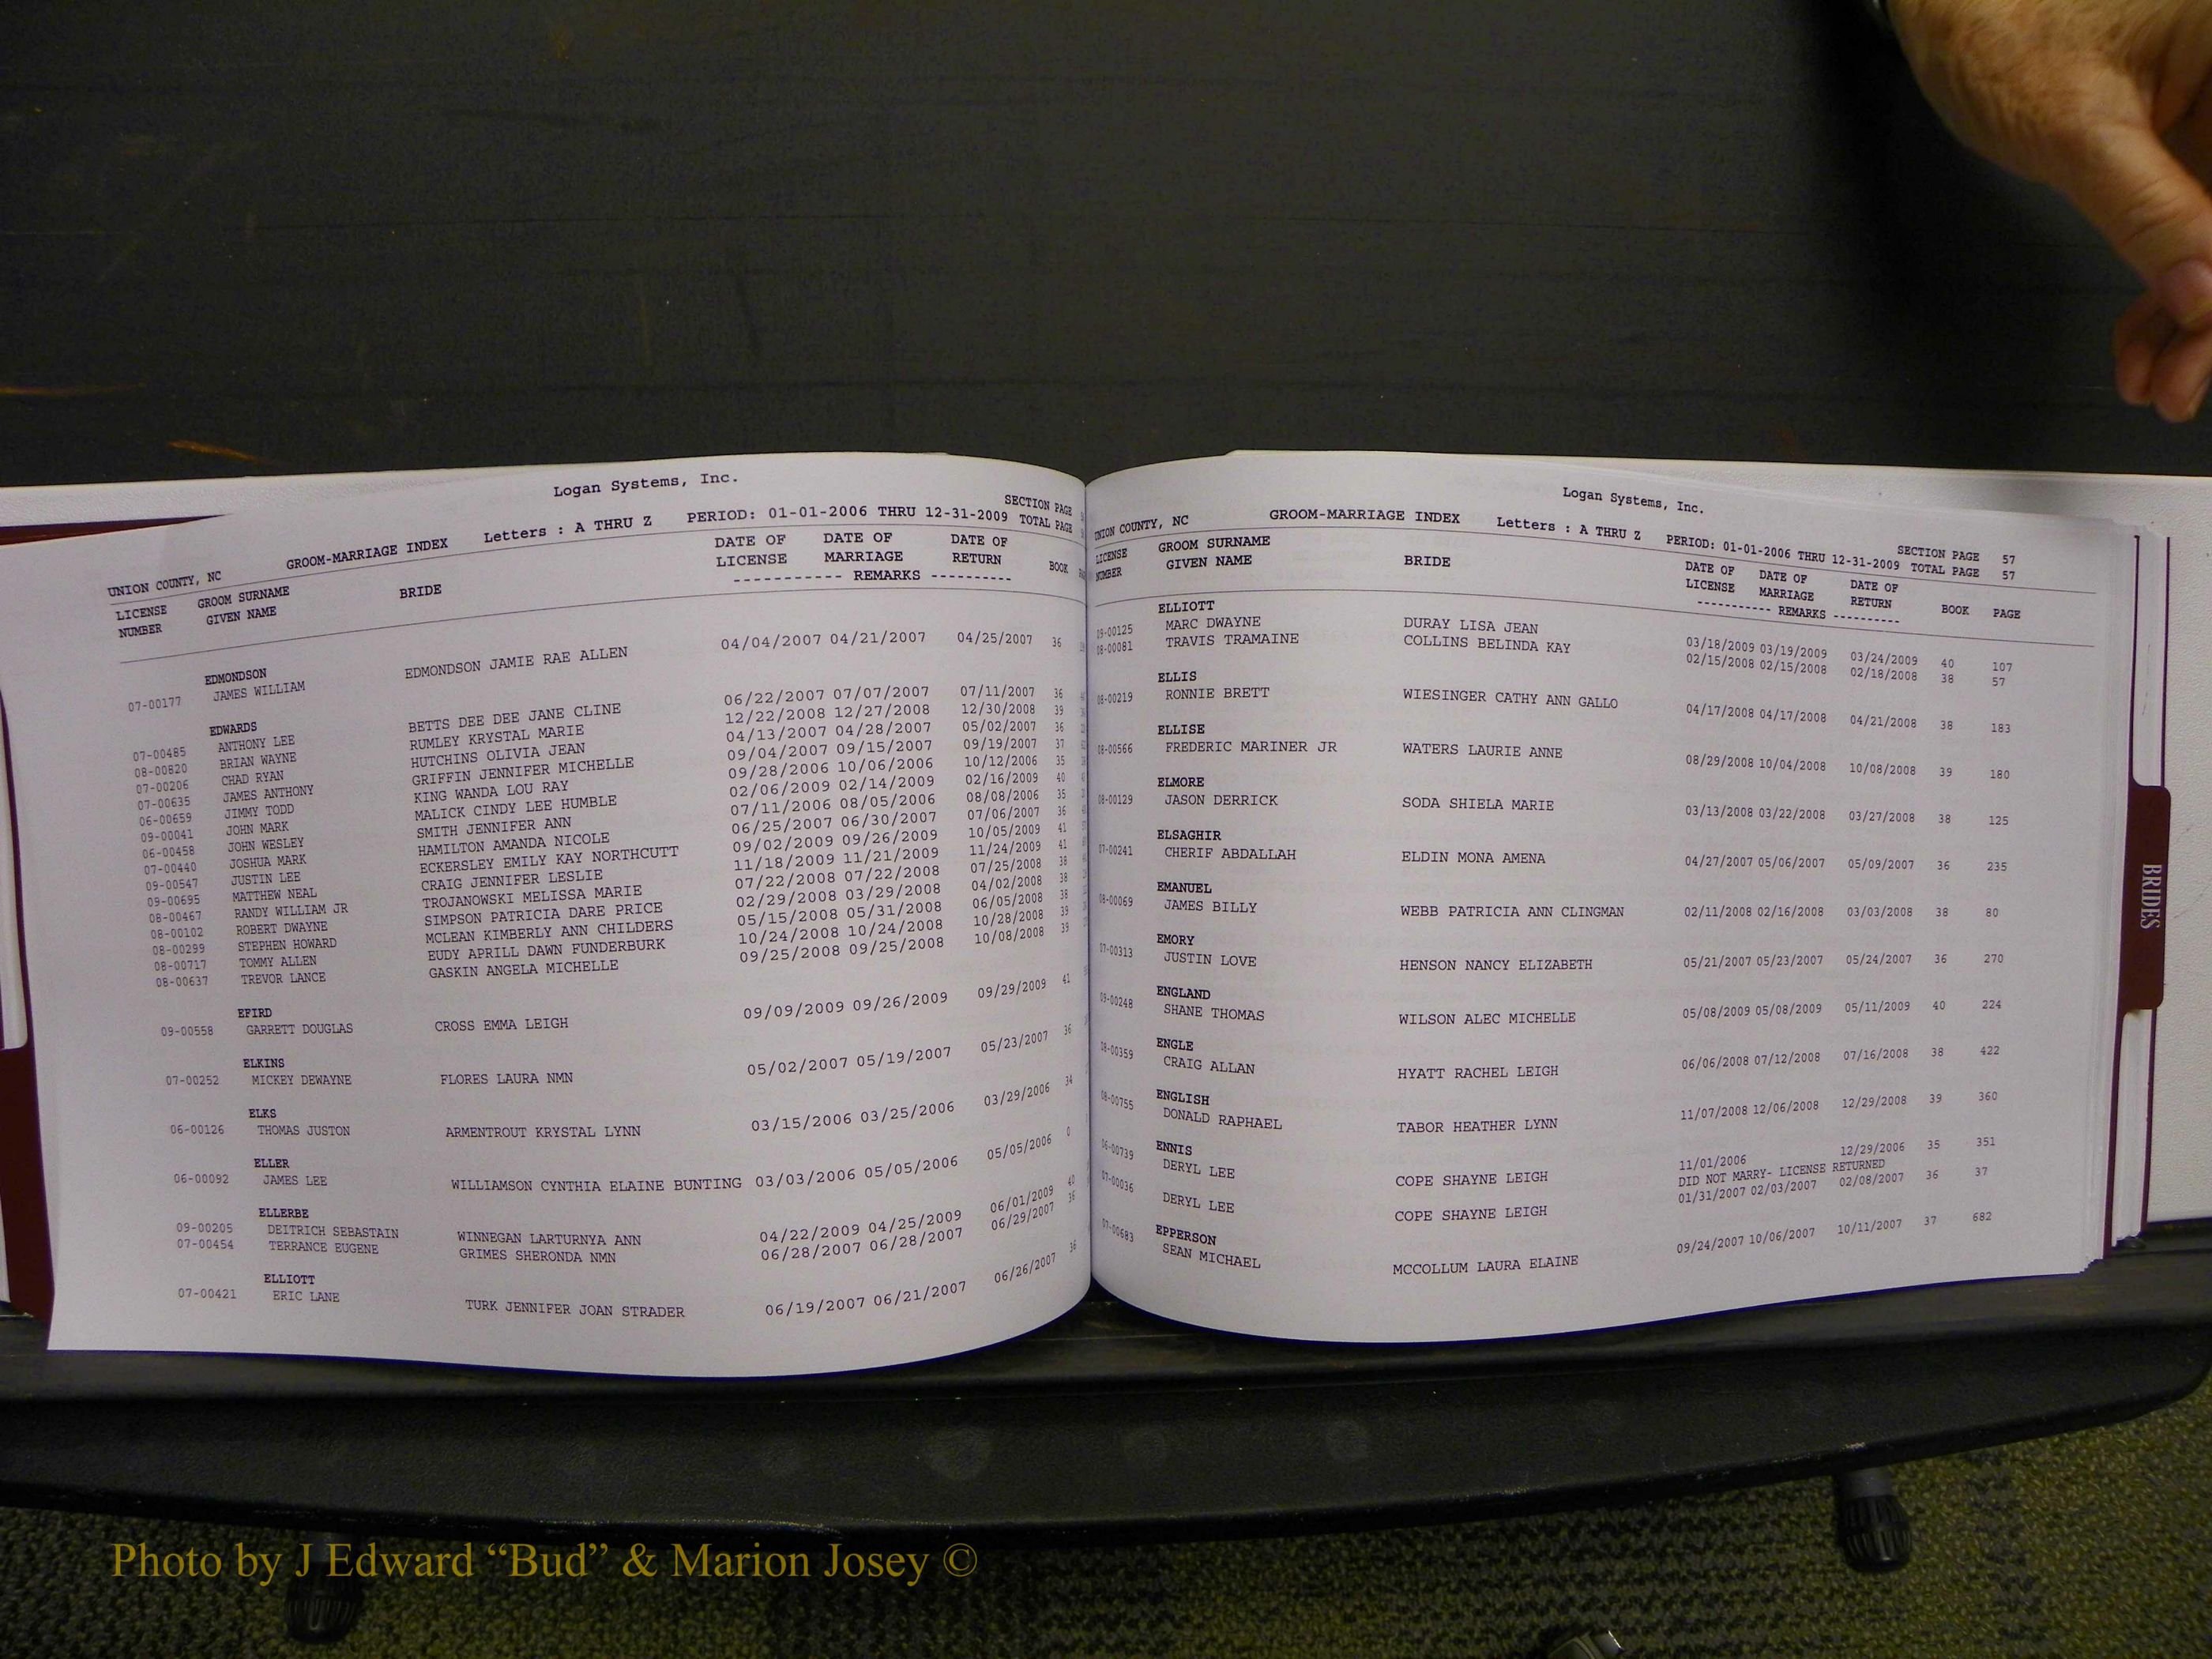 Logan Systems, Inc.
UNION COUNTY, NC GROOM-MARRIAGE INDEX Letters : A THRU Z PERIOD: 01-01-2006 THRU 12-31-2009 SECTION PAGE
TOTAL PAGE
LICENSE NUMBER GROOM SURNAME GIVEN NAME BRIDE DATE OF LICENSE DATE OF MARRIAGE DATE OF RETURN BOOK
----------- REMARKS ----------
EDMONDSON
07-00177 JAMES WILLIAM EDMONDSON JAMIE RAE ALLEN 04/04/2007 04/21/2007 04/25/2007 36
EDWARDS
07-00485 ANTHONY LEE BETTS DEE DEE JANE CLINE 06/22/2007 07/07/2007 07/11/2007 36
08-00820 BRIAN WAYNE RUMLEY KRYSTAL MARIE 12/22/2008 12/27/2008 12/30/2008 39
07-00206 CHAD RYAN HUTCHINS OLIVIA JEAN 04/13/2007 04/28/2007 05/02/2007 36
07-00635 JAMES ANTHONY GRIFFIN JENNIFER MICHELLE 09/04/2007 09/15/2007 09/19/2007 37
06-00659 JIMMY TODD KING WANDA LOU RAY 09/28/2006 10/06/2006 10/12/2006 35
09-00041 JOHN MARK MALICK CINDY LEE HUMBLE 02/06/2009 02/14/2009 02/16/2009 40
06-00458 JOHN WESLEY SMITH JENNIFER ANN 07/11/2006 08/05/2006 08/08/2006 35
07-00440 JOSHUA MARK HAMILTON AMANDA NICOLE 06/25/2007 06/30/2007 07/06/2007 36
09-00547 JUSTIN LEE ECKERSLEY EMILY KAY NORTHCUTT 09/02/2009 09/26/2009 10/05/2009 41
09-00695 MATTHEW NEAL CRAIG JENNIFER LESLIE 11/18/2009 11/21/2009 11/24/2009 41
08-00467 RANDY WILLIAM JR TROJANOWSKI MELISSA MARIE 07/22/2008 07/22/2008 07/25/2008 38
08-00102 ROBERT DWAYNE SIMPSON PATRICIA DARE PRICE 02/29/2008 03/29/2008 04/02/2008 38
08-00299 STEPHEN HOWARD MCLEAN KIMBERLY ANN CHILDERS 05/15/2008 05/31/2008 06/05/2008 38
08-00717 TOMMY ALLEN EUDY APRILL DAWN FUNDERBURK 10/24/2008 10/24/2008 10/28/2008 39
08-00637 TREVOR LANCE GASKIN ANGELA MICHELLE 09/25/2008 09/25/2008 10/08/2008 39
EFIRD
09-00558 GARRETT DOUGLAS CROSS EMMA LEIGH 09/09/2009 09/26/2009 09/29/2009 41
ELKINS
07-00252 MICKEY DEWAYNE FLORES LAURA NMN 05/02/2007 05/19/2007 05/23/2007 36
ELKS
06-00126 THOMAS JUSTON ARMENTROUT KRYSTAL LYNN 03/15/2006 03/25/2006 03/29/2006 34
ELLER
06-00092 JAMES LEE WILLIAMSON CYNTHIA ELAINE BUNTING 03/03/2006 05/05/2006 05/05/2006 0
ELLERBE
09-00205 DEITRICH SEBASTAIN WINNEGAN LARTURNYA ANN 04/22/2009 04/25/2009 06/01/2009 40
07-00454 TERRANCE EUGENE GRIMES SHERONDA NMN 06/28/2007 06/28/2007 06/29/2007 36
ELLIOTT
07-00421 ERIC LANE TURK JENNIFER JOAN STRADER 06/19/2007 06/21/2007 06/26/2007 36
Logan Systems, Inc.
UNION COUNTY, NC GROOM-MARRIAGE INDEX Letters : A THRU Z PERIOD: 01-01-2006 THRU 12-31-2009 SECTION PAGE 57
TOTAL PAGE 57
LICENSE NUMBER GROOM SURNAME GIVEN NAME BRIDE DATE OF LICENSE DATE OF MARRIAGE DATE OF RETURN BOOK PAGE
----------- REMARKS ----------
ELLIOTT
09-00125 MARC DWAYNE DURAY LISA JEAN 03/18/2009 03/19/2009 03/24/2009 40 107
08-00081 TRAVIS TRAMAINE COLLINS BELINDA KAY 02/15/2008 02/15/2008 02/18/2008 38 57
ELLIS
08-00219 RONNIE BRETT WIESINGER CATHY ANN GALLO 04/17/2008 04/17/2008 04/21/2008 38 183
ELLISE
08-00566 FREDERIC MARINER JR WATERS LAURIE ANNE 08/29/2008 10/04/2008 10/08/2008 39 180
ELMORE
08-00129 JASON DERRICK SODA SHIELA MARIE 03/13/2008 03/22/2008 03/27/2008 38 125
ELSAGHIR
07-00241 CHERIF ABDALLAH ELDIN MONA AMENA 04/27/2007 05/06/2007 05/09/2007 36 235
EMANUEL
08-00069 JAMES BILLY WEBB PATRICIA ANN CLINGMAN 02/11/2008 02/16/2008 03/03/2008 38 80
EMORY
07-00313 JUSTIN LOVE HENSON NANCY ELIZABETH 05/21/2007 05/23/2007 05/24/2007 36 270
ENGLAND
09-00248 SHANE THOMAS WILSON ALEC MICHELLE 05/08/2009 05/08/2009 05/11/2009 40 224
ENGLE
08-00359 CRAIG ALLAN HYATT RACHEL LEIGH 06/06/2008 07/12/2008 07/16/2008 38 422
ENGLISH
08-00755 DONALD RAPHAEL TABOR HEATHER LYNN 11/07/2008 12/06/2008 12/29/2008 39 360
ENNIS
06-00739 DERYL LEE COPE SHAYNE LEIGH 11/01/2006 12/29/2006 35 351
DID NOT MARRY- LICENSE RETURNED
07-00036 DERYL LEE COPE SHAYNE LEIGH 01/31/2007 02/03/2007 02/08/2007 36 37
EPPERSON
07-00683 SEAN MICHAEL MCCOLLUM LAURA ELAINE 09/24/2007 10/06/2007 10/11/2007 37 682
BRIDES
Photo by J Edward “Bud” & Marion Josey ©